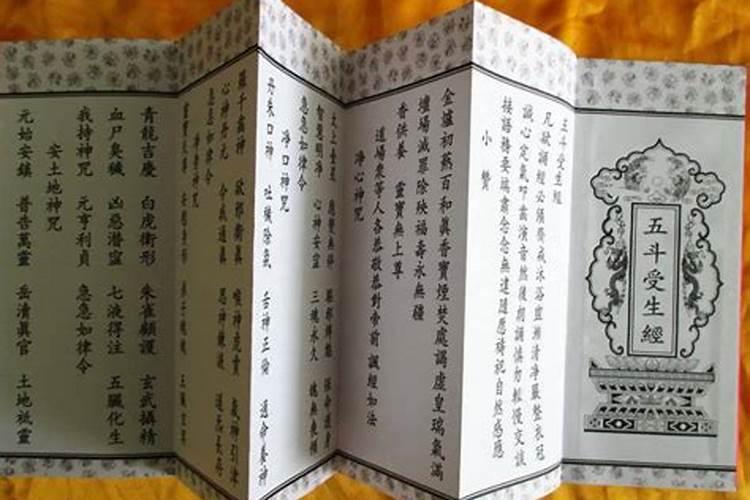 五斗受生經
五斗受生經
凡欲誦經必須齋戒沐浴盥漱清淨嚴整衣冠
誠心定氣叩齒演音然後朗誦慎勿輕慢交談
接語務要端肅念念無違隨應禱祀自然感應
小贊
金爐初爇百和真香寶煙焚處謁虛皇瑞氣滿
壇場滅罪除殃福壽永無疆
香供養 靈寶無上尊
道場衆等人各恭敬恭對帝前 諷經如法
淨心神咒
太上台星 應變無停 驅邪縛魅 保命護身
智慧明淨 心神安寧 三魂永久 魄無喪傾
急急如律令
淨口神咒
丹朱口神 吐穢除氛 舌神正倫 通命養神
羅千齒神 卻邪衛真 喉神虎賁 氣神引津
心神丹元 令我通真 思神鍊液 道炁長存
急急如律令
淨身神咒
靈寶天尊 安慰身形 弟子魂魄 五臟玄冥
青龍吉慶 白虎衛形 朱雀顧護 玄武攝精
血尸臭穢 凶惡潛窪 七液得注 五臟化生
我持神咒 元亨利貞 急急如律令
安土地神咒
元始安鎮 普告萬靈 岳瀆真官 土地祗靈